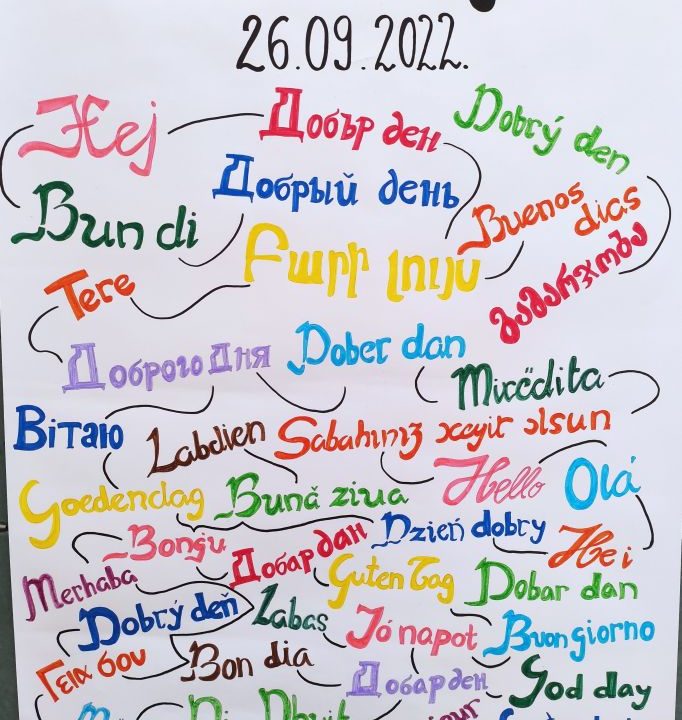 26.09.2022.
Hej
Добър ден
Dobrý den
Bun di
Добрый день
Buenos
dias
Բարի լույս
გამარჯობა
Tere
Доброго Дня
Dober dan
Mirëdita
Вітаю
Labdien
Sabahınız xeyir olsun
Hello
Olá
Goedendag
Bună ziua
Bongu
Добар дан
Dzień dobry
Hei
Merhaba
Guten Tag
Dobar dan
Dobrý deň
Labas
Jó napot
Buongiorno
Γεια σου
Bon dia
Добар ден
God day